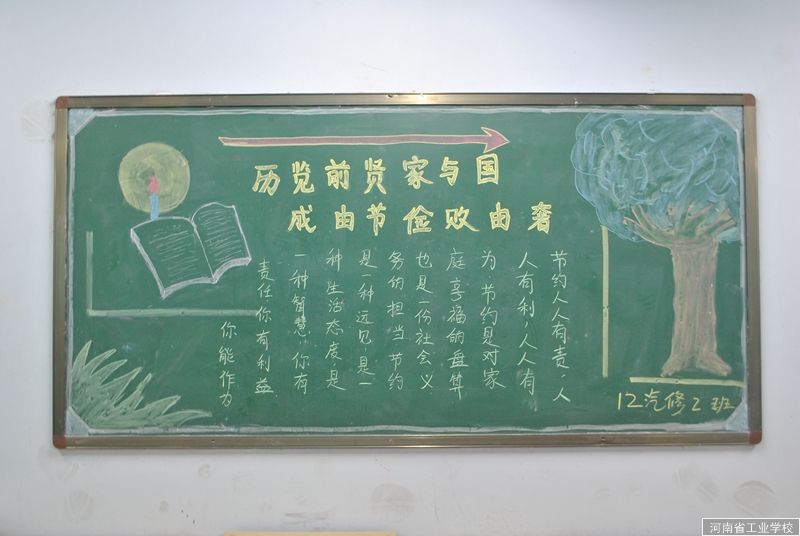 历览前贤家与国
成由节俭败由奢
节约人人有责，人
人有利，人人有
为节约是对家
庭享福的盘算
也是一份社会义
务的担当节约
是一种远见，是一
种生活态度，是
一种智慧，你有
责任你有利益
你能作为
12汽修2班
河南省工业学校